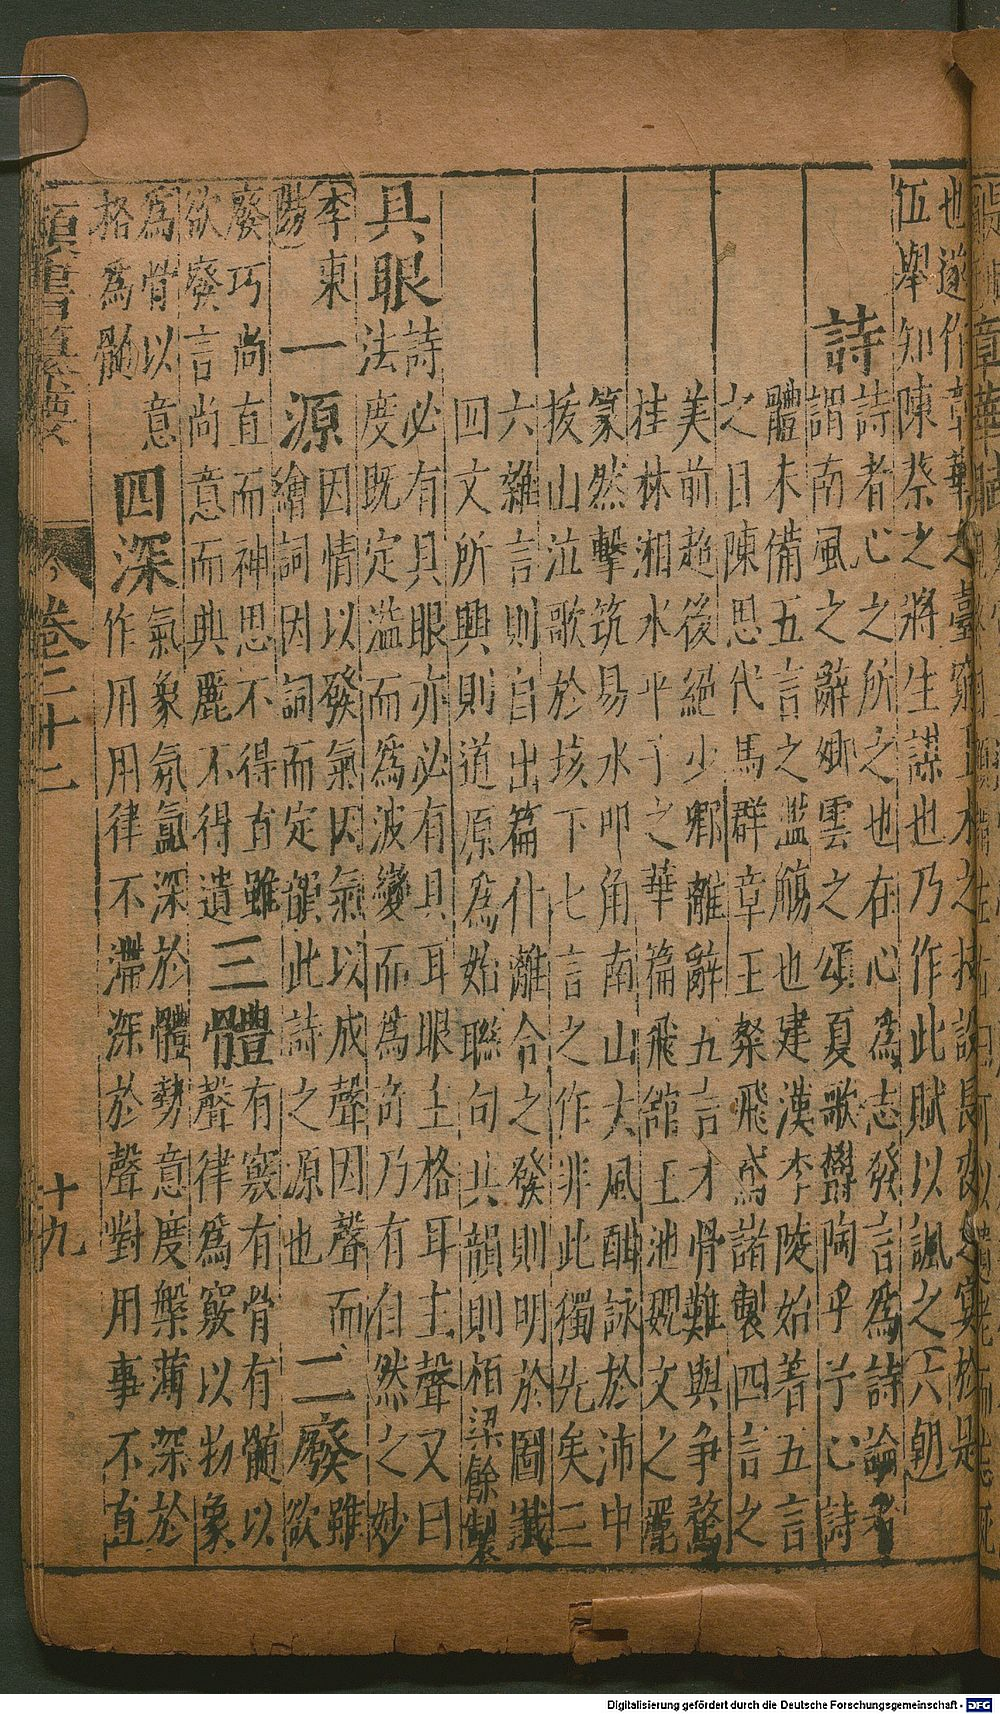 也遂作章華之臺窮土木之技設長夜之宴於是
伍舉知陳蔡之將生謀也乃作此賦以諷之六朝
詩
詩者心之所之也在心為志發言為詩論者
謂南風之辭卿雲之頌夏歌鬱陶乎予心詩
體未備五言之濫觴也建漢李陵始著五言
之目陳思代馬群章王粲飛鸞諸製四言之
美前超後絕少卿離辭五言才骨難與爭驁
桂林湘水平子之華篇飛館玉池魏文之麗
篆然擊筑易水叩角南山大風酣詠於沛中
拔山泣歌於垓下七言之作非此獨先矣三
六雜言則自出篇什離合之發則明於圖讖
四文所興則道原為始聯句共韻則栢梁餘製
具眼
詩必有具眼亦必有具耳眼主格耳主聲又曰
法度既定溢而為波變而為奇乃有自然之妙
李東陽
一源
因情以發氣因氣以成聲因聲而
繪詞因詞而定韻此詩之源也
二廢
雖欲
廢巧尚直而神思不得直雖
欲廢言尚意而典麗不得遺
三體
有竅有骨有髓以
聲律為竅以物象
為骨以意
格為髓
四深
氣象氛氳深於體勢意度槃薄深於
作用用律不滯深於聲對用事不直
類書纂要
卷二十二
十九
Digitalisierung gefördert durch die Deutsche Forschungsgemeinschaft - DFG